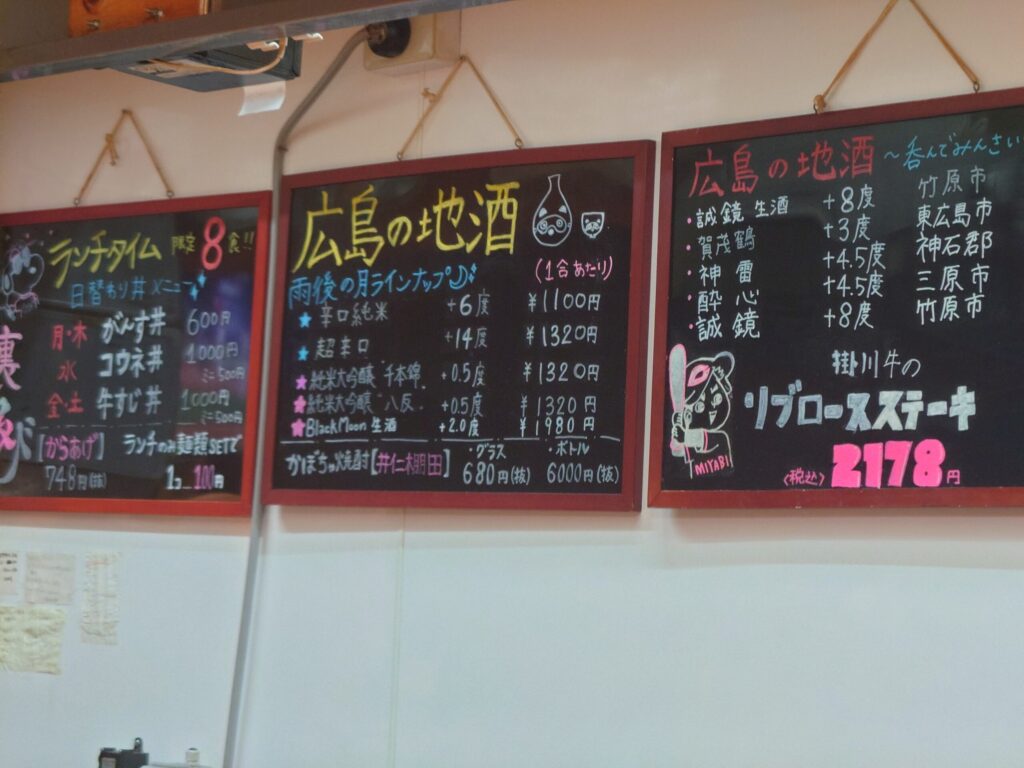 ランチタイム 限定 8食!!
日替わり丼メニュー
月・木 がんす丼 600円
水 コウネ丼 1000円
ミニ500円
金・土 牛すじ丼 1000円
ミニ500円
[からあげ] ランチのみ麺類SETで
748円(抜) 1コ 100円
裏
び
広島の地酒
雨後の月ラインナップ♪
(1合あたり)
★ 辛口純米 +6度 ¥1100円
★ 超辛口 +14度 ¥1320円
★純米大吟醸 千本錦 +0.5度 ¥1320円
★純米大吟醸 八反 +0.5度 ¥1320円
★Black Moon 生酒 +2.0度 ¥1980円
・グラス ・ボトル
かぼちゃ焼酎[井仁棚田] 680円(抜) 6000円(抜)
広島の地酒 〜呑んでみんさい
・誠鏡 生酒 +8度 竹原市
・賀茂鶴 +3度 東広島市
・神雷 +4.5度 神石郡
・酔心 +4.5度 三原市
・誠鏡 +8度 竹原市
掛川牛の
リブロースステーキ
MIYABI
<税込> 2178円